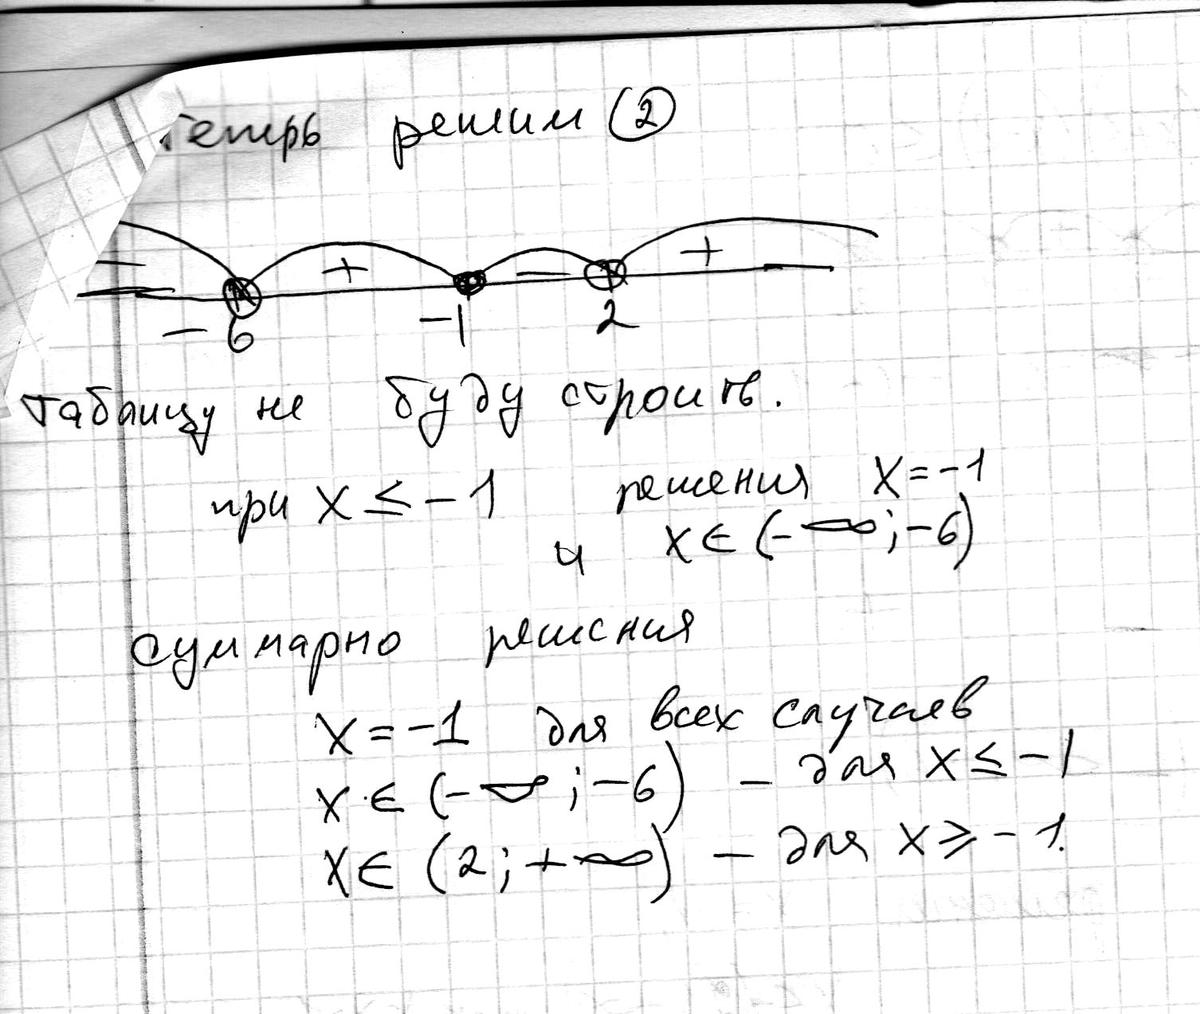 Теперь решим ②
− + − +
− 6 −1 2
Таблицу не буду строить.
при x ≤ −1 решения x = −1
и x ∈ (−∞; −6)
Суммарно решения
x = −1 для всех случаев
x ∈ (−∞; −6) − для x ≤ −1
x ∈ (2; +∞) − для x ≥ −1.